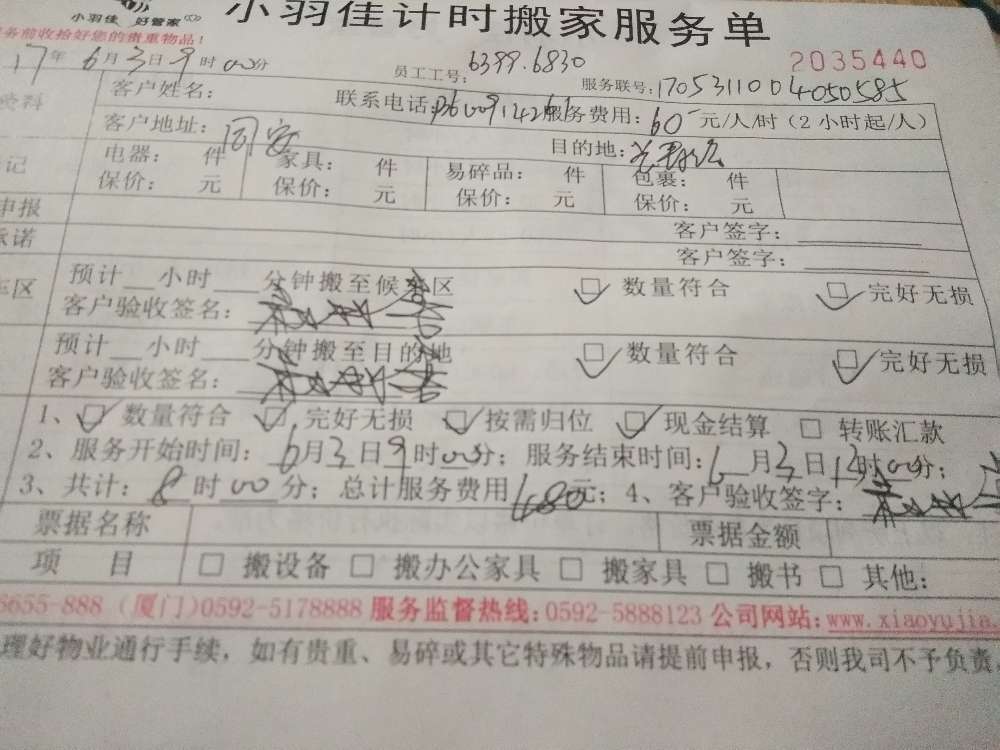 小羽佳 好管家
小羽佳计时搬家服务单
务前收拾好您的贵重物品!
2035440
17年6月3日9时00分
员工工号: 6399.6830
服务联号: 1705311004050585
资料
客户姓名:
联系电话:
服务费用: 60元/人/时（2小时起/人）
客户地址: 同安
目的地:
记
电器: 件
家具: 件
易碎品: 件
包裹: 件
保价: 元
保价: 元
保价: 元
保价: 元
申报
客户签字:
承诺
客户签字:
车区
预计__小时___分钟搬至候车区
数量符合
完好无损
客户验收签名:
预计__小时___分钟搬至目的地
数量符合
完好无损
客户验收签名:
1、数量符合 完好无损 按需归位 现金结算 转账汇款
2、服务开始时间: 6月3日9时00分; 服务结束时间: 6月3日13时00分;
3、共计: 8时00分; 总计服务费用680元; 4、客户验收签字:
票据名称
票据金额
项 目
搬设备 搬办公家具 搬家具 搬书 其他:
8655-888（厦门)0592-5178888 服务监督热线:0592-5888123 公司网站:www.xiaoyujia.
理好物业通行手续，如有贵重、易碎或其它特殊物品请提前申报，否则我司不予负责，